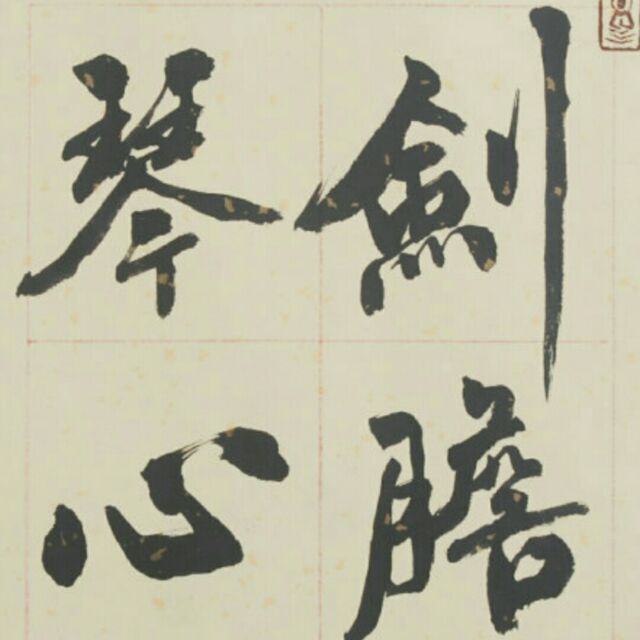 劍膽
琴心